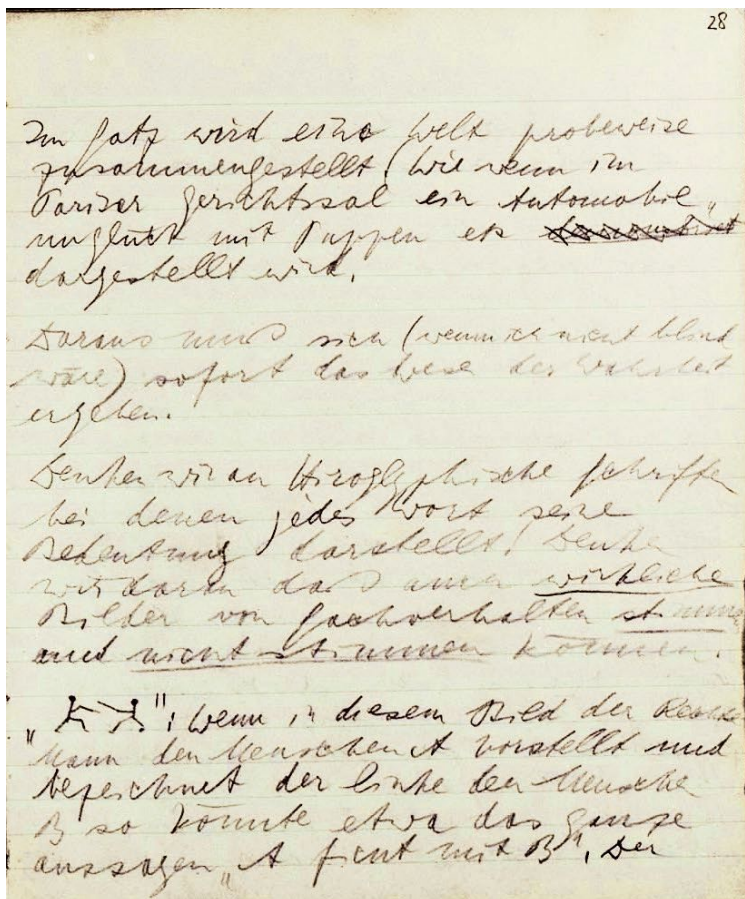 28
Im Satz wird eine Welt probeweise
zusammengestellt. (Wie wenn im
Pariser Gerichtssal ein Automobil„
unglück mit Puppen etc
dargestellt wird.
Daraus muß sich (wenn ich nicht blind
wäre) sofort das Wesen der Wahrheit
ergeben.
Denken wir an Hiroglyphische Schriften
bei denen jedes Wort seine
Bedeutung darstellt! Denken
wir daran daß auch wirkliche
Bilder von Sachverhalten stimmen
und nicht stimmen können.
„ ”: Wenn in diesem Bild der Rechte
Mann den Menschen A vorstellt und
bezeichnet der linke den Menschen
B so könnte etwa das ganze
aussagen „A ficht mit B”. Der